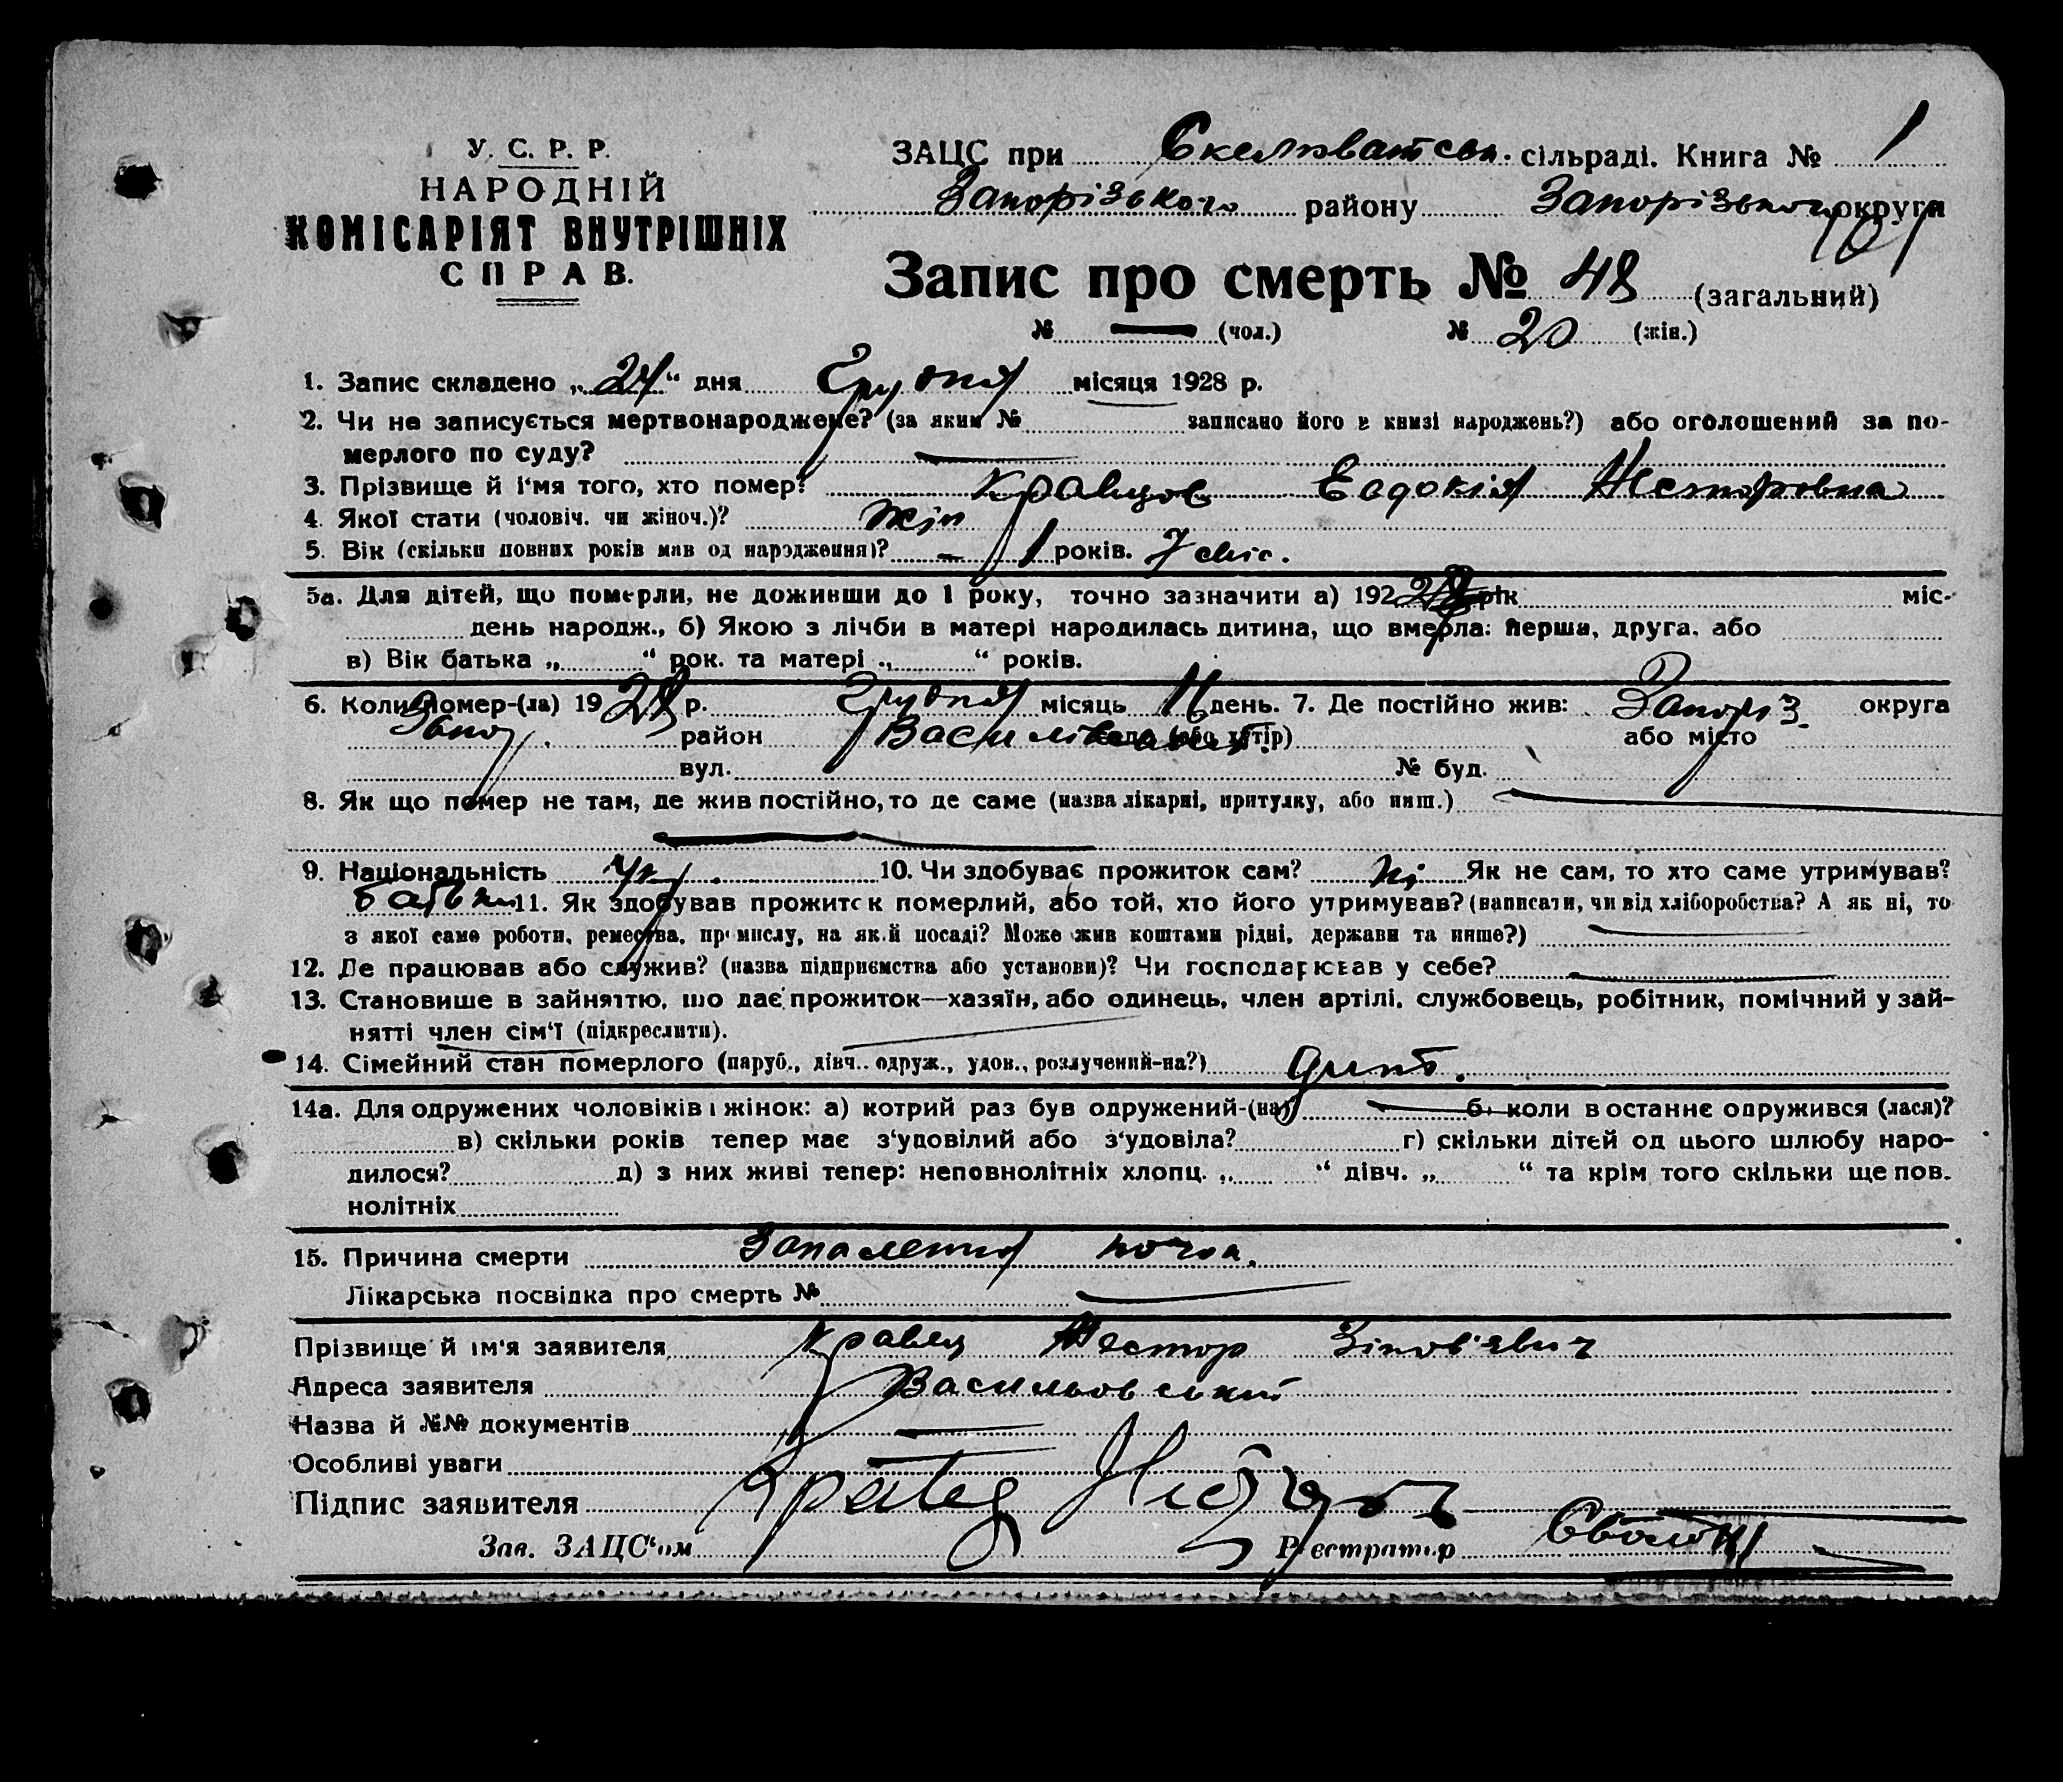 У. С. Р. Р.
НАРОДНІЙ
КОМІСАРІЯТ ВНУТРІШНІХ
СПРАВ.
ЗАЦС при Скельковатськ. сільраді. Книга № 1
Запорізького району Запорізького округи
Запис про смерть № 48 (загальний)
№ — (чол.) № 20 (жін.)
1. Запис складено „24“ дня Грудня місяця 1928 р.
2. Чи не записується мертвонароджене? (за яким № записано його в книзі народжень?) або оголошений за по-
мерлого по суду? —
3. Прізвище й і‘мя того, хто помер? Кравцов Евдокія Несторовна
4. Якої стати (чоловіч. чи жіноч.)? жін
5. Вік (скільки повних років мав од народження)? – 1 років. 7 міс.
5а. Для дітей, що померли, не доживши до 1 року, точно зазначити а) 192 рік міс-
день народж., б) Якою з лічби в матері народилась дитина, що вмерла: перша, друга, або
в) Вік батька „ “ рок. та матері „ “ років.
6. Коли помер-(ла) 1928 р. Грудня місяць день. 7. Де постійно жив: Запоріз. округа
Запор. район село (або хутір) або місто
вул. № буд.
8. Як що помер не там, де жив постійно, то де саме (назва лікарні, притулку, або инш.) —
9. Національність Укр. 10. Чи здобуває прожиток сам? ні Як не сам, то хто саме утримував?
батьки 11. Як здобував прожиток померлий, або той, хто його утримував? (написати, чи від хліборобства? А як ні, то
з якої саме роботи, ремества, промислу, на якій посаді? Може жив коштами рідні, держави та инше?) —
12. Де працював або служив? (назва підприємства або установи)? Чи господарював у себе? —
13. Становише в зайняттю, що дає прожиток—хазяїн, або одинець, член артілі, службовець, робітник, помічний у зай-
нятті член сім‘ї (підкреслити).
14. Сімейний стан померлого (паруб., дівч., одруж., удов., розлучений-на?) дит.
14а. Для одружених чоловіків і жінок: а) котрий раз був одружений-(на) — б) коли в останнє одружився (лася)?
в) скільки років тепер має з‘удовілий або з‘удовіла? г) скільки дітей од цього шлюбу наро-
дилося? д) з них живі тепер: неповнолітніх хлопц. „ “ дівч. „ “ та крім того скільки ще пов.
нолітніх
15. Причина смерти Запалення
Лікарська посвідка про смерть № —
Прізвище й ім'я заявителя Кравец Нестор Зіновʼєвич
Адреса заявителя Васильовський
Назва й №№ документів —
Особливі уваги —
Підпис заявителя Кравец
Зав. ЗАЦС‘ом Реєстратор